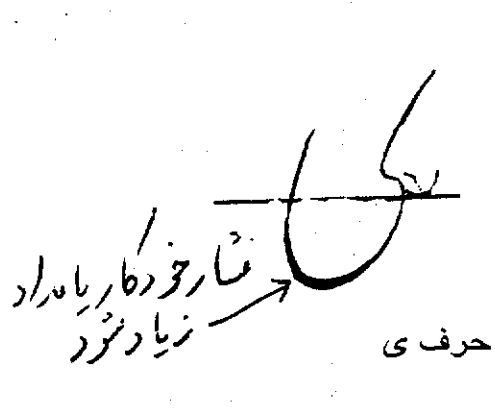 فشار خودکار یا مداد
زیاد شود
حرف ی